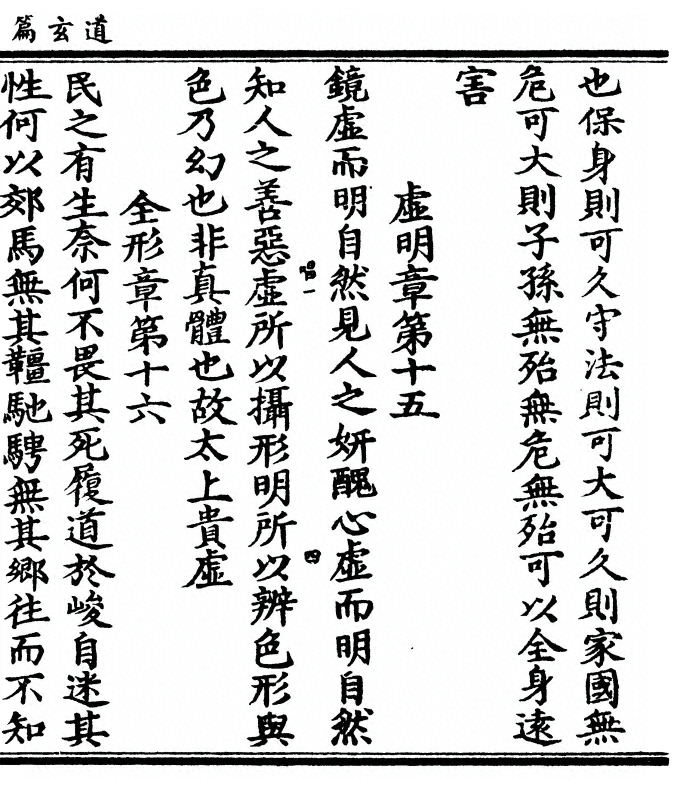 道玄篇
也保身則可久守法則可大可久則家國無
危可大則子孫無殆無危無殆可以全身遠
害
虛明章第十五
鏡虛而明自然見人之妍醜心虛而明自然
知人之善惡虛所以攝形明所以辨色形與
色乃幻也非真體也故太上貴虛
全形章第十六
民之有生奈何不畏其死履道於峻自迷其
性何以郊馬無其韁馳騁無其鄉往而不知